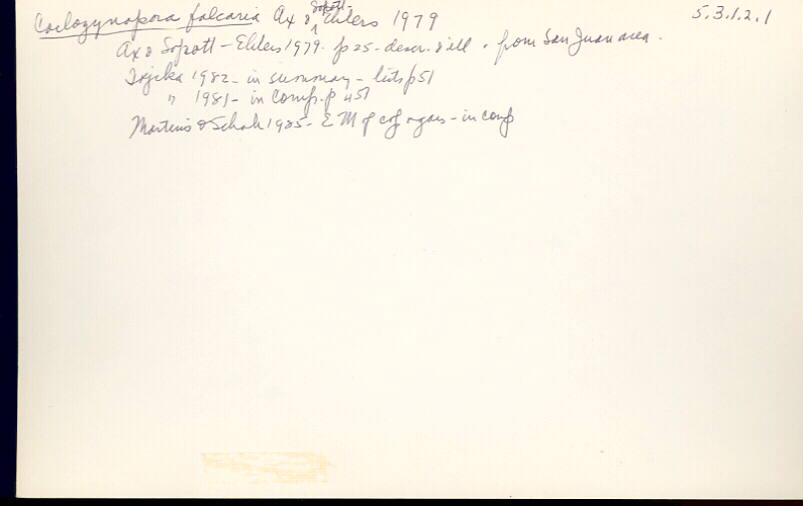 Coelogynopora falcaria Ax & Sopott-Ehlers 1979 5.3.1.2.1
Ax & Sopott-Ehlers 1979. p 25 - descr. & ill. from San Juan area.
Tajika 1982 - in summary - lists p 51
" 1981 - in comp. p 451
Martens & Schok 1985 - EM of cop organs - in comp